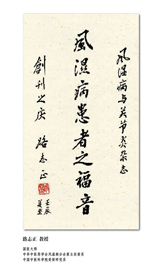 风湿病与关节炎杂志
風濕病患者之福音
創刊之庆 路志正
壬辰
路志正 教授
国医大师
中华中医药学会风湿病分会 主任委员
中国中医科学院 研究员